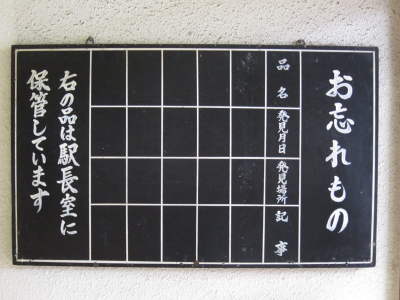 お忘れもの
品名
発見月日
発見場所
記事
右の品は駅長室に
保管しています